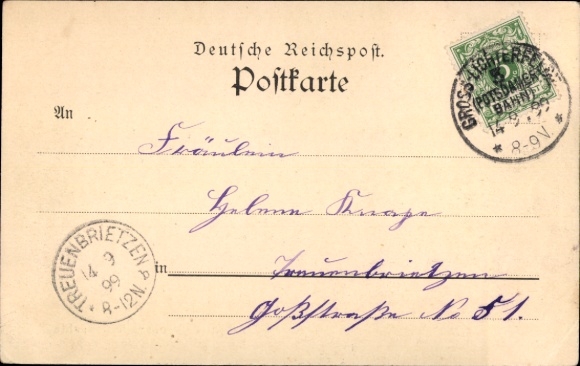 Deutsche Reichspost.
Postkarte
An
Fräulein
Helene Knape
in Treuenbrietzen
Goßstraße No 51.
GROSS-LICHTERFELDE
(POTSDAMER
BAHN)
14 9 99
* 8-9V. *
5
TREUENBRIETZEN
14 9
99
* 8-12N.